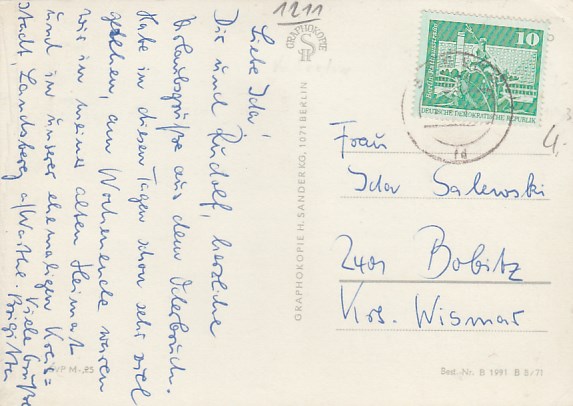 1211
GRAPHOKOPIE
Liebe Ida!
Dir und Rudolf, herzliche
Urlaubsgrüße aus dem Oderbruch.
Habe in diesen Tagen schon sehr viel
gesehen, am Wochenende waren
wir in meiner alten Heimat
und in unserer ehemaligen Kreis=
stadt, Landsberg a/Warthe.
Viele Grüße
Brigitte
VP M -,25
GRAPHOKOPIE H. SANDER KG, 1071 BERLIN
10
Berlin, Rathausstraße
DEUTSCHE DEMOKRATISCHE REPUBLIK
td
4,-
Frau
Ida Salewski
2401 Bobitz
Krs. Wismar
Best.-Nr. B 1991 B 5/71